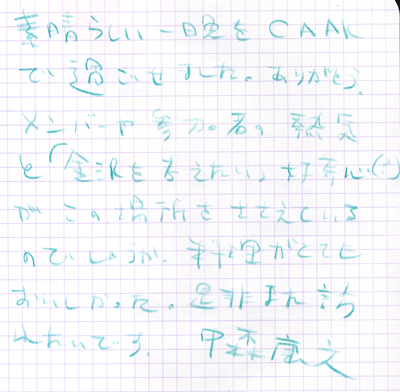 素晴らしい一晩をCAAK
で過ごせました。ありがとう。
メンバーや参加者の熱気
と「金沢を考えたい」好奇心(?)
がこの場所をささえている
のでしょうか。料理がとても
おいしかった。是非また訪
れたいです。中森康文